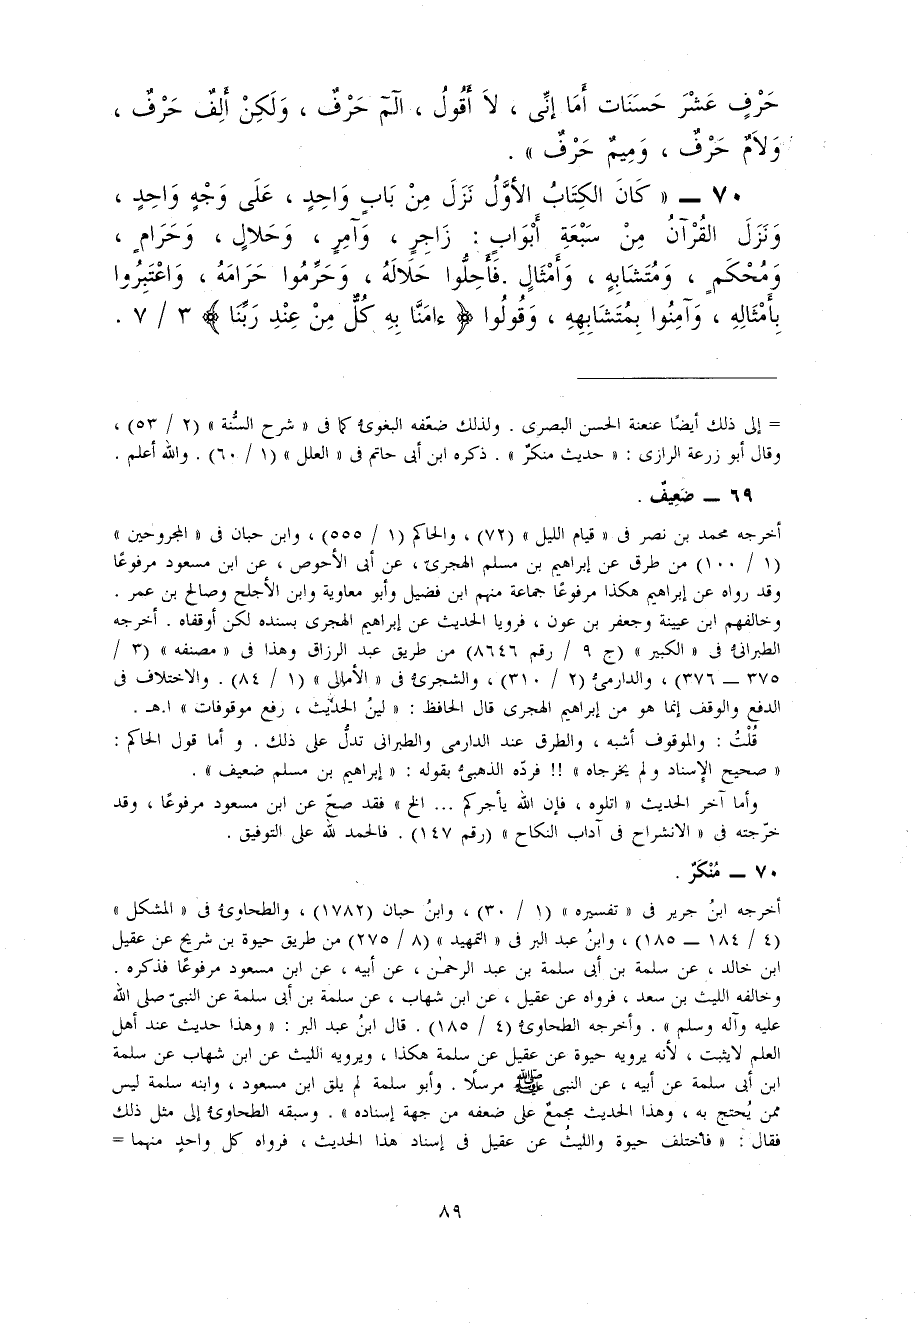 حَرْفٍ عَشْرَ حَسَنَات أَمَا إنِّى ، لاَ أَقُولُ ، الٓمٓ حَرْفٌ ، وَلَكِنْ أَلِفٌ حَرْفٌ ،
وَلاَمٌ حَرْفٌ ، وَمِيمٌ حَرْفٌ » .
٧٠ ــ « كَانَ الكِتَابُ الأوَّلُ نَزَلَ مِنْ بَابٍ وَاحِدٍ ، عَلَى وَجْهٍ وَاحِدٍ ،
وَنَزَلَ القُرْآنُ مِنْ سَبْعَةِ أَبْوَابٍ : زَاجِرٍ ، وَآمِرٍ ، وَحَلالٍ ، وَحَرَامٍ ،
وَمُحْكَمٍ ، وَمُتَشَابِهٍ ، وَأَمْثَالٍ . فَأَحِلُّوا حَلاَلَهُ ، وَحَرِّمُوا حَرَامَهُ ، وَاعْتَبِرُوا
بِأَمْثَالِهِ ، وَآمِنُوا بِمُتَشَابِهِهِ ، وَقُولُوا ﴿ ءامَنَّا بِهِ كُلٌّ مِنْ عِنْدِ رَبِّنَا ﴾ ٣ / ٧ .
= إلى ذلك أيضًا عنعنة الحسن البصرى . ولذلك ضعّفه البغوىُّ كما فى « شرح السُّنة » (٢ / ٥٣) ،
وقال أبو زرعة الرازى : « حديث منكرٌ » . ذكره ابن أبى حاتم فى « العلل » (١ / ٦٠) . والله أعلم .
٦٩ ــ ضَعِيفٌ .
أخرجه محمد بن نصر فى « قيام الليل » (٧٢) ، والحاكم (١ / ٥٥٥) ، وابن حبان فى « المجروحين »
(١ / ١٠٠) من طرق عن إبراهيم بن مسلم الهجرى ، عن أبى الأحوص ، عن ابن مسعود مرفوعًا
وقد رواه عن إبراهيم هكذا مرفوعًا جماعة منهم ابن فضيل وأبو معاوية وابن الأجلح وصالح بن عمر .
وخالفهم ابن عيينة وجعفر بن عون ، فرويا الحديث عن إبراهيم الهجرى بسنده لكن أوقفاه . أخرجه
الطبرانىُّ فى « الكبير » (ج ٩ / رقم ٨٦٤٦) من طريق عبد الرزاق وهذا فى « مصنفه » (٣ /
٣٧٥ ــ ٣٧٦) ، والدارمىُّ (٢ / ٣١٠) ، والشجرىُّ فى « الأمالى » (١ / ٨٤) . والاختلاف فى
الدفع والوقف إنما هو من إبراهيم الهجرى قال الحافظ : « لينُ الحدِّيث ، رفع موقوفات » ا.هـ .
قُلْتُ : والموقوف أشبه ، والطرق عند الدارمى والطبرانى تدلُّ على ذلك . و أما قول الحاكم :
« صحيح الإسناد ولم يخرجاه » !! فردّه الذهبىُّ بقوله : « إبراهيم بن مسلم ضعيف » .
وأما آخر الحديث « اتلوه ، فإن الله يأجركم ... الخ » فقد صحّ عن ابن مسعود مرفوعًا ، وقد
خرّجته فى « الانشراح فى آداب النكاح » (رقم ١٤٧) . فالحمد لله على التوفيق .
٧٠ ــ مُنْكَرٌ .
أخرجه ابنُ جرير فى « تفسيره » (١ / ٣٠) ، وابنُ حبان (١٧٨٢) ، والطحاوىُّ فى « المشكل »
(٤ / ١٨٤ ــ ١٨٥) ، وابنُ عبد البر فى « التمهيد » (٨ / ٢٧٥) من طريق حيوة بن شريح عن عقيل
ابن خالد ، عن سلمة بن أبى سلمة بن عبد الرحمٰن ، عن أبيه ، عن ابن مسعود مرفوعًا فذكره .
وخالفه الليث بن سعد ، فرواه عن عقيل ، عن ابن شهاب ، عن سلمة بن أبى سلمة عن النبىّ صلى الله
عليه وآله وسلم » . وأخرجه الطحاوىُّ (٤ / ١٨٥) . قال ابنُ عبد البر : « وهذا حديث عند أهل
العلم لايثبت ، لأنه يرويه حيوة عن عقيل عن سلمة هكذا ، ويرويه الليث عن ابن شهاب عن سلمة
ابن أبى سلمة عن أبيه ، عن النبى ﷺ مرسلًا . وأبو سلمة لم يلق ابن مسعود ، وابنه سلمة ليس
ممن يُحتج به ، وهذا الحديث مجمعٌ على ضعفه من جهة إسناده » . وسبقه الطحاوىُّ إلى مثل ذلك
فقال : « فاختلف حيوة والليثُ عن عقيل فى إسناد هذا الحديث ، فرواه كل واحدٍ منهما =
٨٩